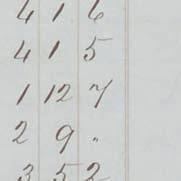 4 1 6
4 1 5
1 12 7
2 9 "
3 5 2